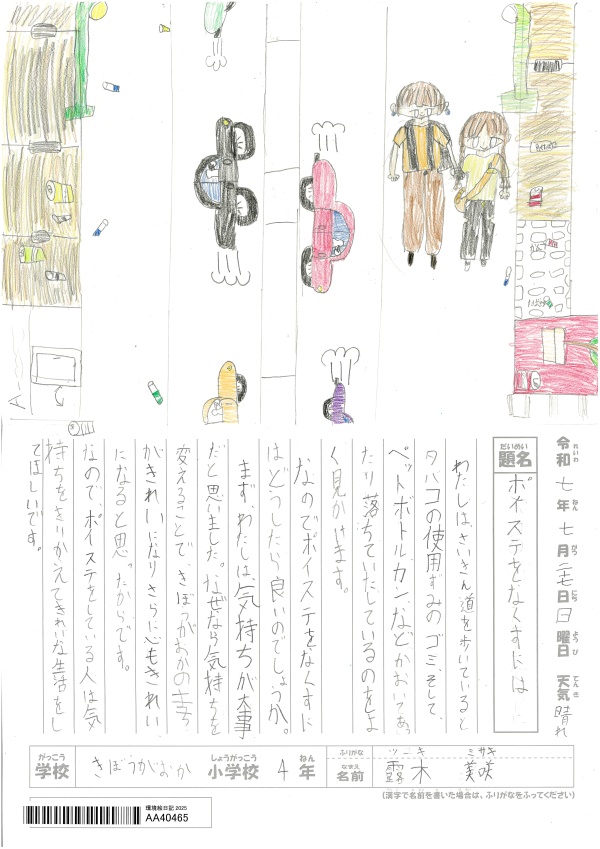 令和七年七月二七日日曜日 天気 晴れ
れいわ ねん がつ にち ようび てんき
だいめい
題名 ポイステをなくすには
わたしは、さいきん道を歩いていると
タバコの使用ずみのゴミ、そして、
ペットボトル、カンなどがおいてあっ
たり落ちていたしているのをよ
く見かけます。
なのでポイステをなくすに
はどうしたら良いのでしょうか。
まず、わたしは、気持ちが大事
だと思いました。なぜなら気持ちを
変えることで、きぼうがおかの
がきれいになりさらに心もきれい
になると思ったからです。
なので、ポイステをしている人は気
持ちをきりかえてきれいな生活をし
てほしいです。
がっこう しょうがっこう ねん
学校 きぼうがおか 小学校 4年
ふりがな ツユキ ミサキ
なまえ
名前 露木 美咲
(漢字で名前を書いた場合は、ふりがなをふってください)
環境絵日記 2025
AA40465